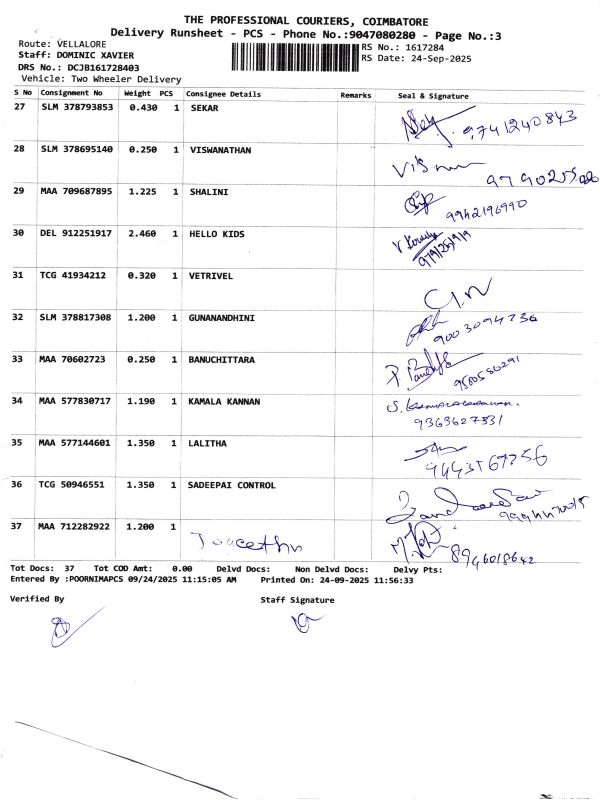 THE PROFESSIONAL COURIERS, COIMBATORE
Delivery Runsheet - PCS - Phone No.:9047080280 - Page No.:3
Route: VELLALORE
RS No.: 1617284
Staff: DOMINIC XAVIER
RS Date: 24-Sep-2025
DRS No.: DCJB161728403
Vehicle: Two Wheeler Delivery
S No Consignment No Weight PCS Consignee Details Remarks Seal & Signature
27 SLM 378793853 0.430 1 SEKAR
9741240843
28 SLM 378695140 0.250 1 VISWANATHAN
29 MAA 709687895 1.225 1 SHALINI
9942196990
30 DEL 912251917 2.460 1 HELLO KIDS
31 TCG 41934212 0.320 1 VETRIVEL
32 SLM 378817308 1.200 1 GUNANANDHINI
9003094736
33 MAA 70602723 0.250 1 BANUCHITTARA
9500580291
34 MAA 577830717 1.190 1 KAMALA KANNAN
9363627331
35 MAA 577144601 1.350 1 LALITHA
36 TCG 50946551 1.350 1 SADEEPAI CONTROL
37 MAA 712282922 1.200 1
8946018642
Tot Docs: 37 Tot COD Amt: 0.00 Delvd Docs: Non Delvd Docs: Delvy Pts:
Entered By :POORNIMAPCS 09/24/2025 11:15:05 AM Printed On: 24-09-2025 11:56:33
Verified By Staff Signature